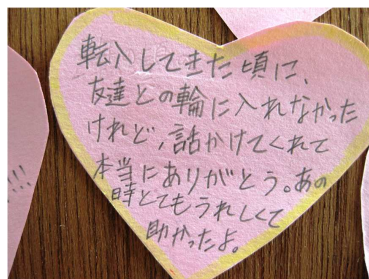 転入してきた頃に、
友達との輪に入れなかった
けれど、話かけてくれて
本当にありがとう。あの
時とてもうれしくて
助かったよ。
!!!